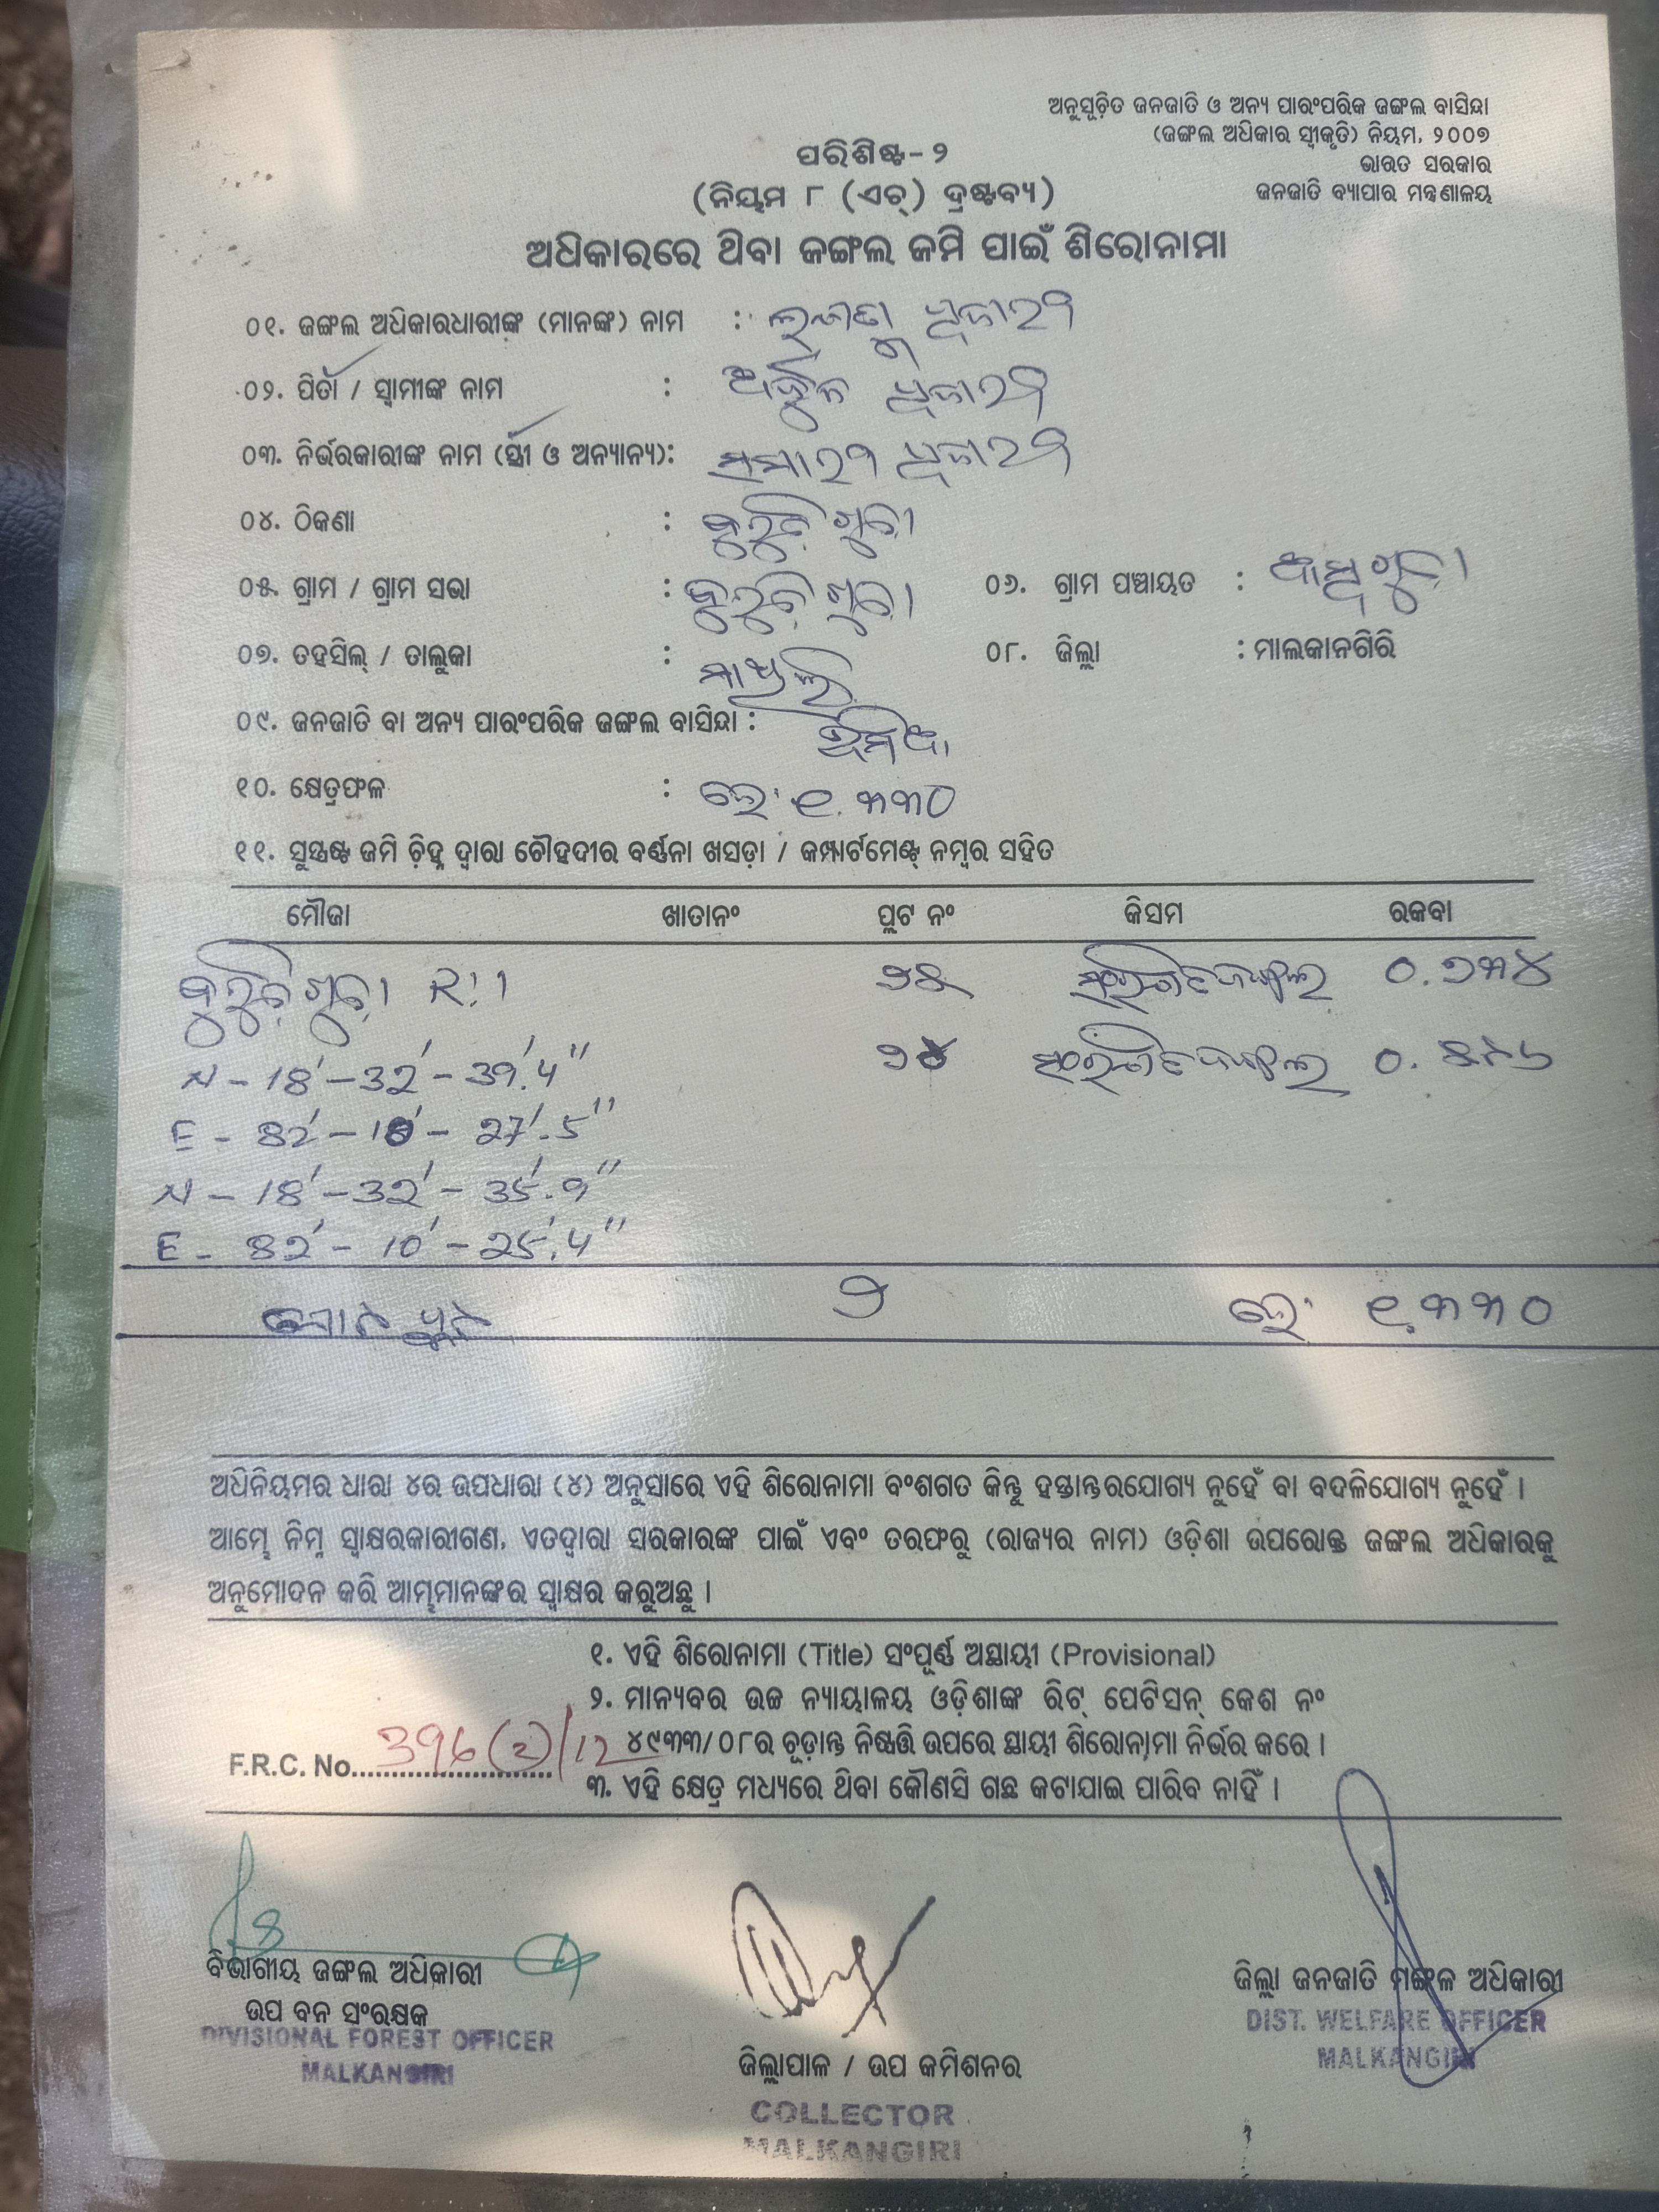 ଅନୁସୂଚିତ ଜନଜାତି ଓ ଅନ୍ୟ ପାରଂପରିକ ଜଙ୍ଗଲ ବାସିନ୍ଦା
(ଜଙ୍ଗଲ ଅଧିକାର ସ୍ୱୀକୃତି) ନିୟମ, ୨୦୦୭
ଭାରତ ସରକାର
ଜନଜାତି ବ୍ୟାପାର ମନ୍ତ୍ରଣାଳୟ
ପରିଶିଷ୍ଟ-୨
(ନିୟମ ୮ (ଏଚ୍) ଦ୍ରଷ୍ଟବ୍ୟ)
ଅଧିକାରରେ ଥିବା ଜଙ୍ଗଲ ଜମି ପାଇଁ ଶିରୋନାମା
୦୧. ଜଙ୍ଗଲ ଅଧିକାରଧାରୀଙ୍କ (ମାନଙ୍କ) ନାମ :
୦୨. ପିତା / ସ୍ୱାମୀଙ୍କ ନାମ : ଅର୍ଜୁନ
୦୩. ନିର୍ଭରକାରୀଙ୍କ ନାମ (ସ୍ତ୍ରୀ ଓ ଅନ୍ୟାନ୍ୟ):
୦୪. ଠିକଣା :
୦୫. ଗ୍ରାମ / ଗ୍ରାମ ସଭା : ୦୬. ଗ୍ରାମ ପଞ୍ଚାୟତ :
୦୭. ତହସିଲ୍ / ତାଲୁକା : ୦୮. ଜିଲ୍ଲା : ମାଲକାନଗିରି
୦୯. ଜନଜାତି ବା ଅନ୍ୟ ପାରଂପରିକ ଜଙ୍ଗଲ ବାସିନ୍ଦା : ଭୂମିଆ
୧୦. କ୍ଷେତ୍ରଫଳ : ହେ: ୧.୩୩୦
୧୧. ସୁସ୍ପଷ୍ଟ ଜମି ଚିହ୍ନ ଦ୍ୱାରା ଚୌହଦୀର ବର୍ଣ୍ଣନା ଖସଡ଼ା / କମ୍ପାର୍ଟମେଣ୍ଟ୍ ନମ୍ବର ସହିତ
ମୌଜା ଖାତାନଂ ପ୍ଲଟ ନଂ କିସମ ରକବା
୦.୭୩୪
N - 18' - 32' - 39'.4"
E - 82' - 10' - 27'.5"
N - 18' - 32' - 35'.9"
E - 82' - 10' - 25'.4"
୨ ହେ: ୧.୩୩୦
ଅଧିନିୟମର ଧାରା ୪ର ଉପଧାରା (୪) ଅନୁସାରେ ଏହି ଶିରୋନାମା ବଂଶଗତ କିନ୍ତୁ ହସ୍ତାନ୍ତରଯୋଗ୍ୟ ନୁହେଁ ବା ବଦଳିଯୋଗ୍ୟ ନୁହେଁ ।
ଆମ୍ଭେ ନିମ୍ନ ସ୍ୱାକ୍ଷରକାରୀଗଣ, ଏତଦ୍ୱାରା ସରକାରଙ୍କ ପାଇଁ ଏବଂ ତରଫରୁ (ରାଜ୍ୟର ନାମ) ଓଡ଼ିଶା ଉପରୋକ୍ତ ଜଙ୍ଗଲ ଅଧିକାରକୁ
ଅନୁମୋଦନ କରି ଆମ୍ଭମାନଙ୍କର ସ୍ୱାକ୍ଷର କରୁଅଛୁ ।
୧. ଏହି ଶିରୋନାମା (Title) ସଂପୂର୍ଣ୍ଣ ଅସ୍ଥାୟୀ (Provisional)
୨. ମାନ୍ୟବର ଉଚ୍ଚ ନ୍ୟାୟାଳୟ ଓଡ଼ିଶାଙ୍କ ରିଟ୍ ପେଟିସନ୍ କେଶ ନଂ
୪୯୩୩/୦୮ର ଚୂଡ଼ାନ୍ତ ନିଷ୍ପତ୍ତି ଉପରେ ସ୍ଥାୟୀ ଶିରୋନାମା ନିର୍ଭର କରେ ।
F.R.C. No. 396(2)/12
୩. ଏହି କ୍ଷେତ୍ର ମଧ୍ୟରେ ଥିବା କୌଣସି ଗଛ କଟାଯାଇ ପାରିବ ନାହିଁ ।
ବିଭାଗୀୟ ଜଙ୍ଗଲ ଅଧିକାରୀ
ଉପ ବନ ସଂରକ୍ଷକ
DIVISIONAL FOREST OFFICER
MALKANGIRI
ଜିଲ୍ଲାପାଳ / ଉପ କମିଶନର
COLLECTOR
MALKANGIRI
ଜିଲ୍ଲା ଜନଜାତି ମଙ୍ଗଳ ଅଧିକାରୀ
DIST. WELFARE OFFICER
MALKANGIRI